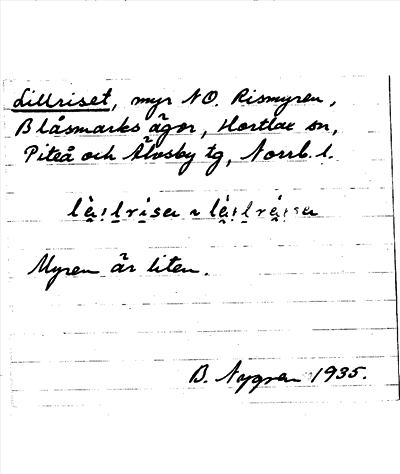 Lillriset, myr NO. Rismyren,
Blåsmarks ägor, Hortlax sn,
Piteå och Älvsby tg, Norrb. l.
Myren är liten.
B. Nygren 1935.